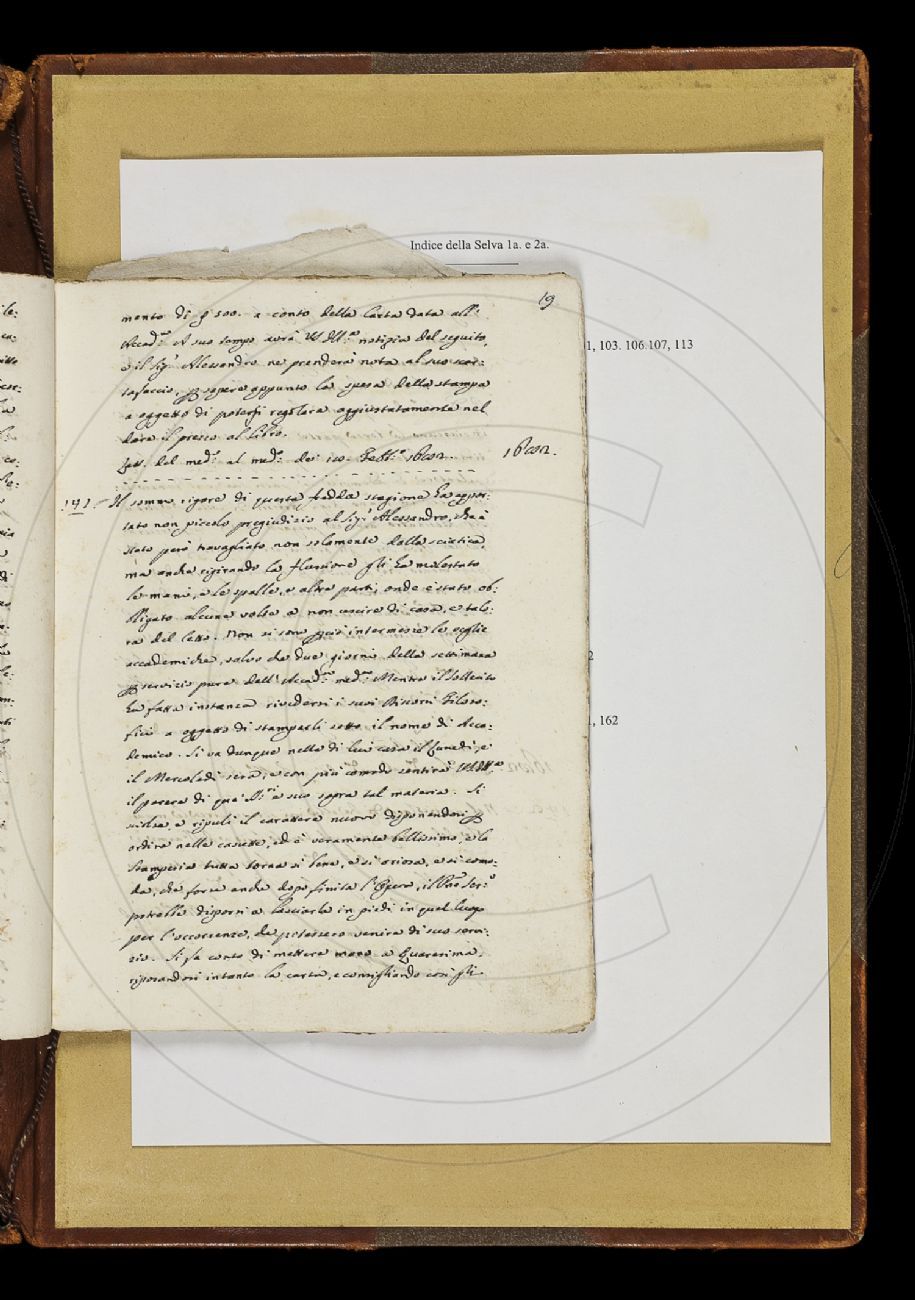 Indice della Selva 1a. e 2a.
19
1, 103. 106.107, 113
mento di 500. a conto della Carta data all':
Accad.ª A suo tempo avrà V. Ill.ª notizia del seguito,
e il Sig.r Alessandro ne prenderà nota al suo scar:
tafaccio, sapere appunto la spesa della stampa
a oggetto di potersi regolare aggiustatamente nel
dare il prezzo al libro.
Lett. del med.º al med.º dei 10. Febb.º
141 Il sommo rigore di questa fredda stagione ha appor:
tato non piccolo pregiudizio al Sig.r Alessandro, che è
stato però travagliato non solamente dalla sciatica,
ma anche rigirando la flussione gli ha molestato
le mani, e le spalle, e altre parti, onde è stato ob:
bligato alcune volte a non uscire di casa, e talo:
ra del letto. Non si son però intermesse le veglie
accademiche, salvo che due giorni della settimana
servizio pure dell'Accad.ª med.ª Mentre il Sollecito
ha fatto instanza rivedersi i suoi Discorsi Filoso:
fici a oggetto di stamparli sotto il nome di Acca:
demico. Si va dunque nella di lui casa il Lunedì, e
il Mercoledì sera, e con più comodo sentirà V. Ill.ª
il parere di que' SS.ri e suo sopra tal materia. Si
sciolse, e ripulì il carattere nuovo disponendosi
ordine nelle cassette, ed è veramente bellissimo, e la
Stamperia tutta torna sì bene, e sì ariosa, e sì como:
da, che forse anche dopo finita l'Opera, il Pne Ser.º
potrebbe disporsi a lasciarla in piedi in quel luogo
per l'occorrenze, che potessero venire di suo servi:
zio. Si fa conto di mettere mano a Quaresima,
riposandosi intanto la carta, e consigliando con gli
2
1, 162